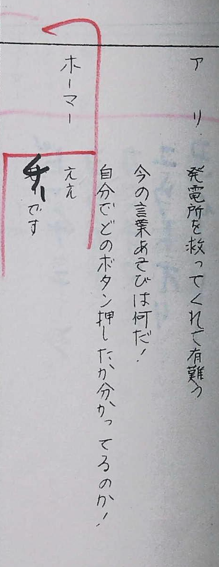 アリ 発電所を救ってくれて有難う
今の言葉あそびは何だ!
自分でどのボタン押したか分かってるのか!
ホーマー ええ
です